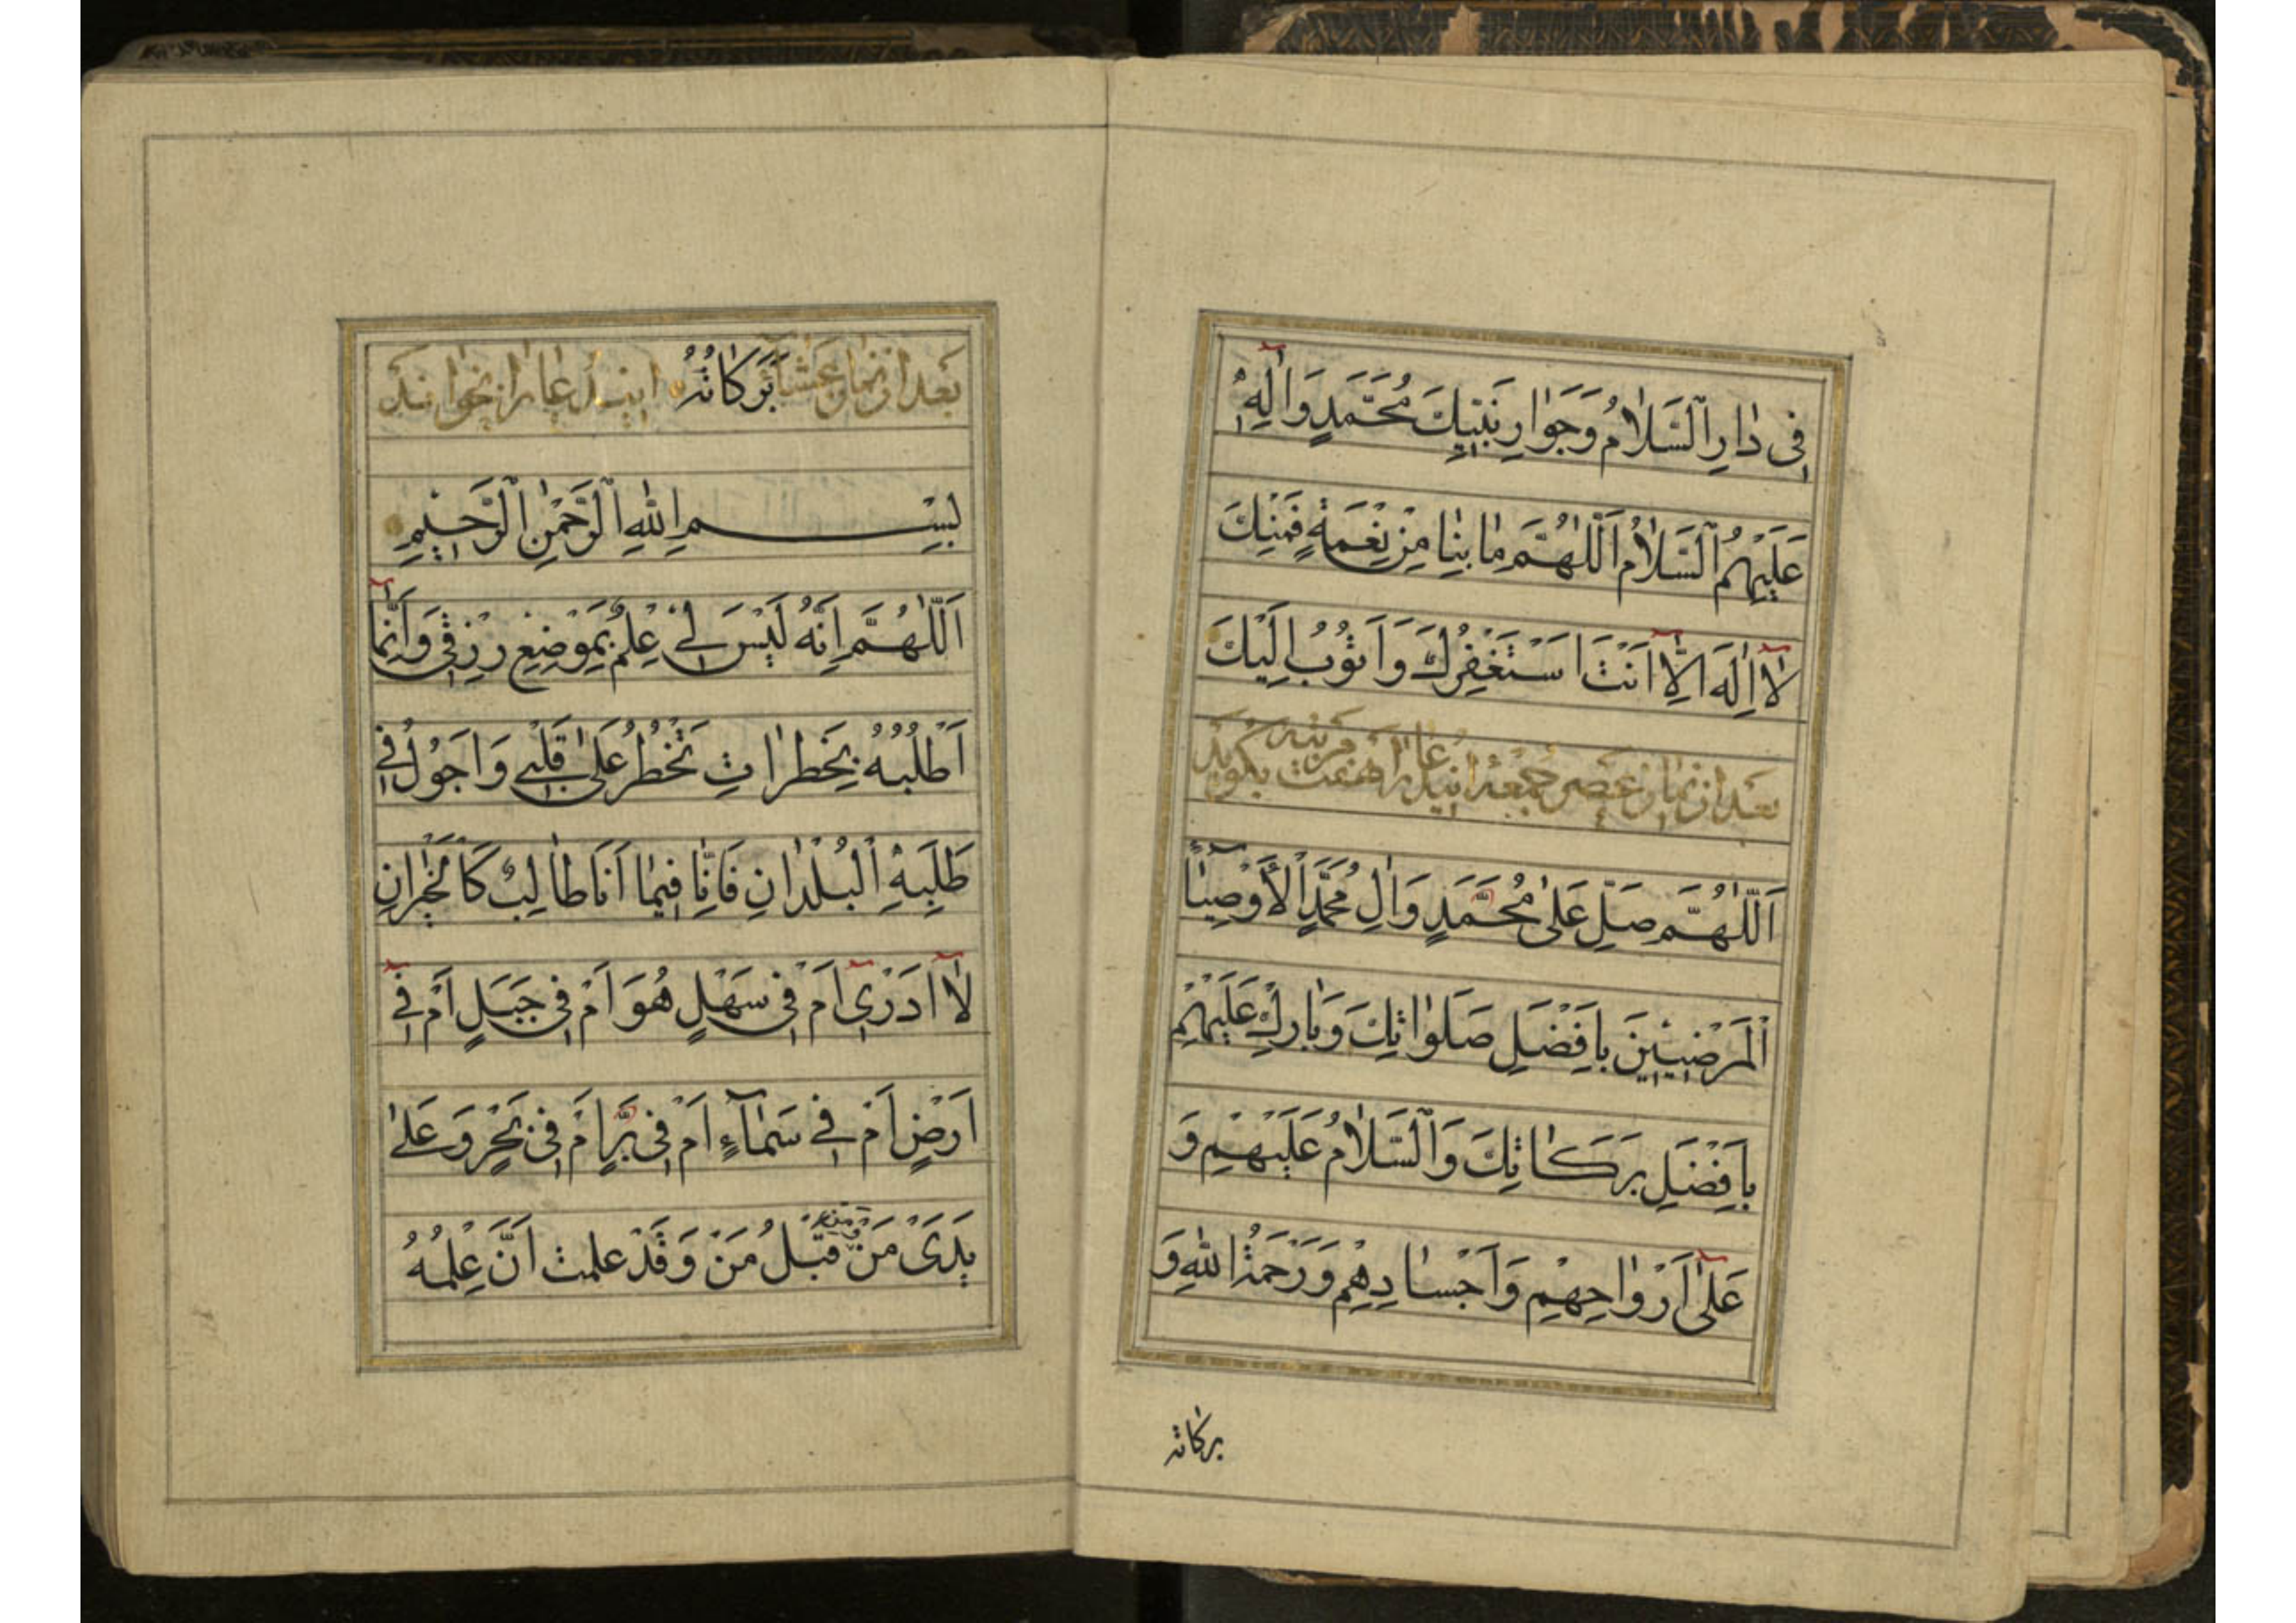 فِى دٰارِ السَّلاٰمُ وَجَوٰارِ نَبِيِّكَ مُحَمَّدٍ وَاٰلِهِ
عَلَيْهِمُ السَّلاٰمُ اَللّٰهُمَّ مٰا بِنٰا مِنْ نِعْمَةٍ فَمِنْكَ
لاٰۤ اِلٰهَ اِلاّٰۤ اَنْتَ اَسْتَغْفِرُكَ وَاَتُوبُ اِلَيْكَ
بعد از نماز عصر جمعه اين دعا را هفت مرتبه بگويد
اَللّٰهُمَّ صَلِّ عَلىٰ مُحَمَّدٍ وَاٰلِ مُحَمَّدٍ الْاَوْصِيٰاۤءِ
الْمَرْضِيِّينَ بِاَفْضَلِ صَلَوٰاتِكَ وَبٰارِكْ عَلَيْهِمْ
بِاَفْضَلِ بَرَكٰاتِكَ وَالسَّلاٰمُ عَلَيْهِمْ وَ
عَلىٰۤ اَرْوٰاحِهِمْ وَاَجْسٰادِهِمْ وَرَحْمَةُ اللّٰهِ وَ
بركاته
بَرَكٰاتُهُ بعد از نماز عشا اين دعا را بخوانند
بِسْمِ اللّٰهِ الرَّحْمٰنِ الرَّحِيمِ
اَللّٰهُمَّ اِنَّهُ لَيْسَ لِى عِلْمٌ بِمَوْضِعِ رِزْقِى وَاِنَّمٰاۤ
اَطْلُبُهُ بِخَطَرٰاتٍ تَخْطُرُ عَلىٰ قَلْبِى وَاَجُولُ فِى
طَلَبِهِ الْبُلْدٰانَ فَاَنَا فِيمٰا اَنَا طٰالِبٌ كَالْحَيْرٰانِ
لاٰۤ اَدْرِىۤ اَمْ فِى سَهْلٍ هُوَ اَمْ فِى جَبَلٍ اَمْ فِىۤ
اَرْضٍ اَمْ فِى سَمٰاۤءٍ اَمْ فِى بَرٍّ اَمْ فِى بَحْرٍ وَعَلىٰ
يَدَىْ مَنْ وَمِنْ قِبَلِ مَنْ وَقَدْ علمت اَنَّ عِلْمَهُ